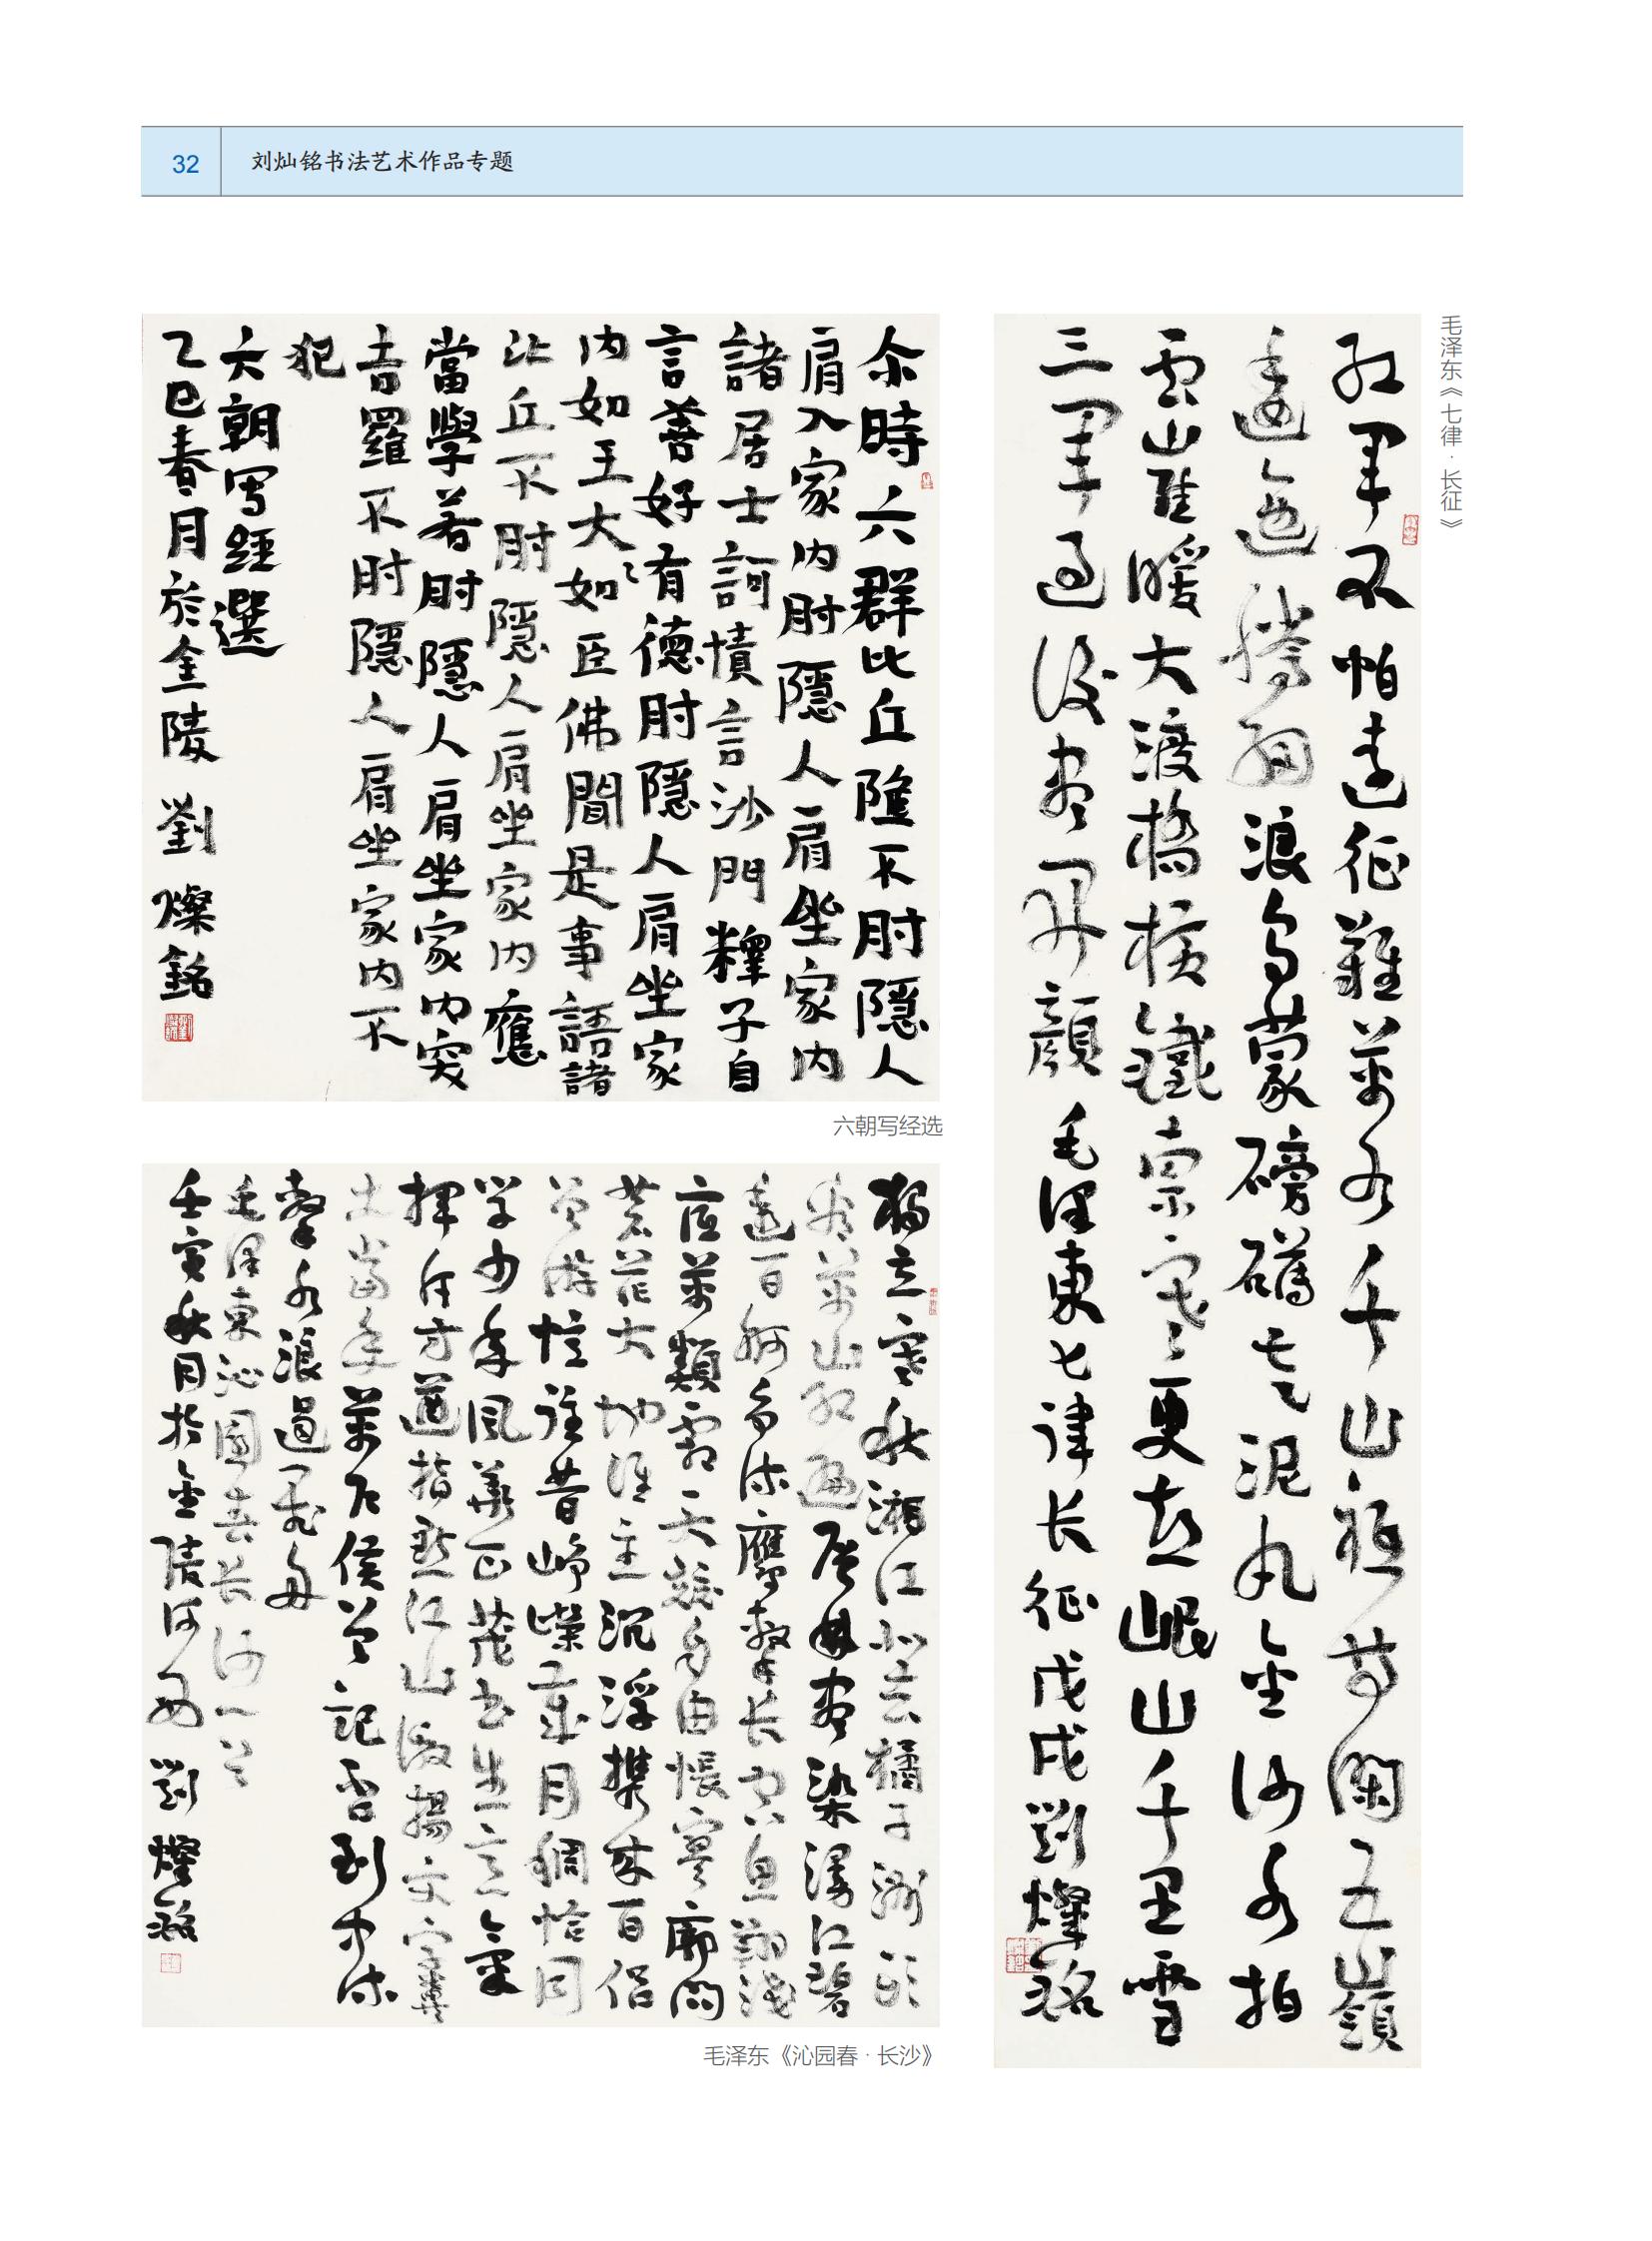 32
刘灿铭书法艺术作品专题
尒時六群比丘隆不肘隱人
肩入家内肘隱人肩坐家内
諸居士訶憒言沙門釋子自
言善好有德肘隱人肩坐家
内如王大〻如臣佛聞是事語諸
比丘不肘隱人肩坐家内應
當學若肘隱人肩坐家内突
吉羅不肘隱人肩坐家内不
犯
六朝写經選
乙巳春月於金陵 劉燦銘
六朝写经选
獨立寒秋湘江北去橘子洲頭
看萬山红遍層林盡染漫江碧
透百舸争流鷹擊长空魚翔淺
底萬類霜天競自由悵寥廓問
蒼茫大地谁主沉浮携来百侣
曾游憶往昔峥嵘歲月稠恰同
学少年風華正茂书生意氣
揮斥方遒指點江山激揚文字糞
土當年萬户侯曾記否到中流
擊水浪遏飛舟
毛泽東沁園春长沙一首
壬寅秋月於金陵河西 劉燦銘
毛泽东《沁园春·长沙》
红軍不怕远征難萬水千山祗等闌五嶺
逶迤腾细浪烏蒙磅礴走泥丸金沙水拍
雲崖暖大渡橋横鐵索寒〻更喜岷山千里雪
三軍過後盡開顔 毛泽東七律长征戊戌劉燦銘
毛泽东《七律·长征》